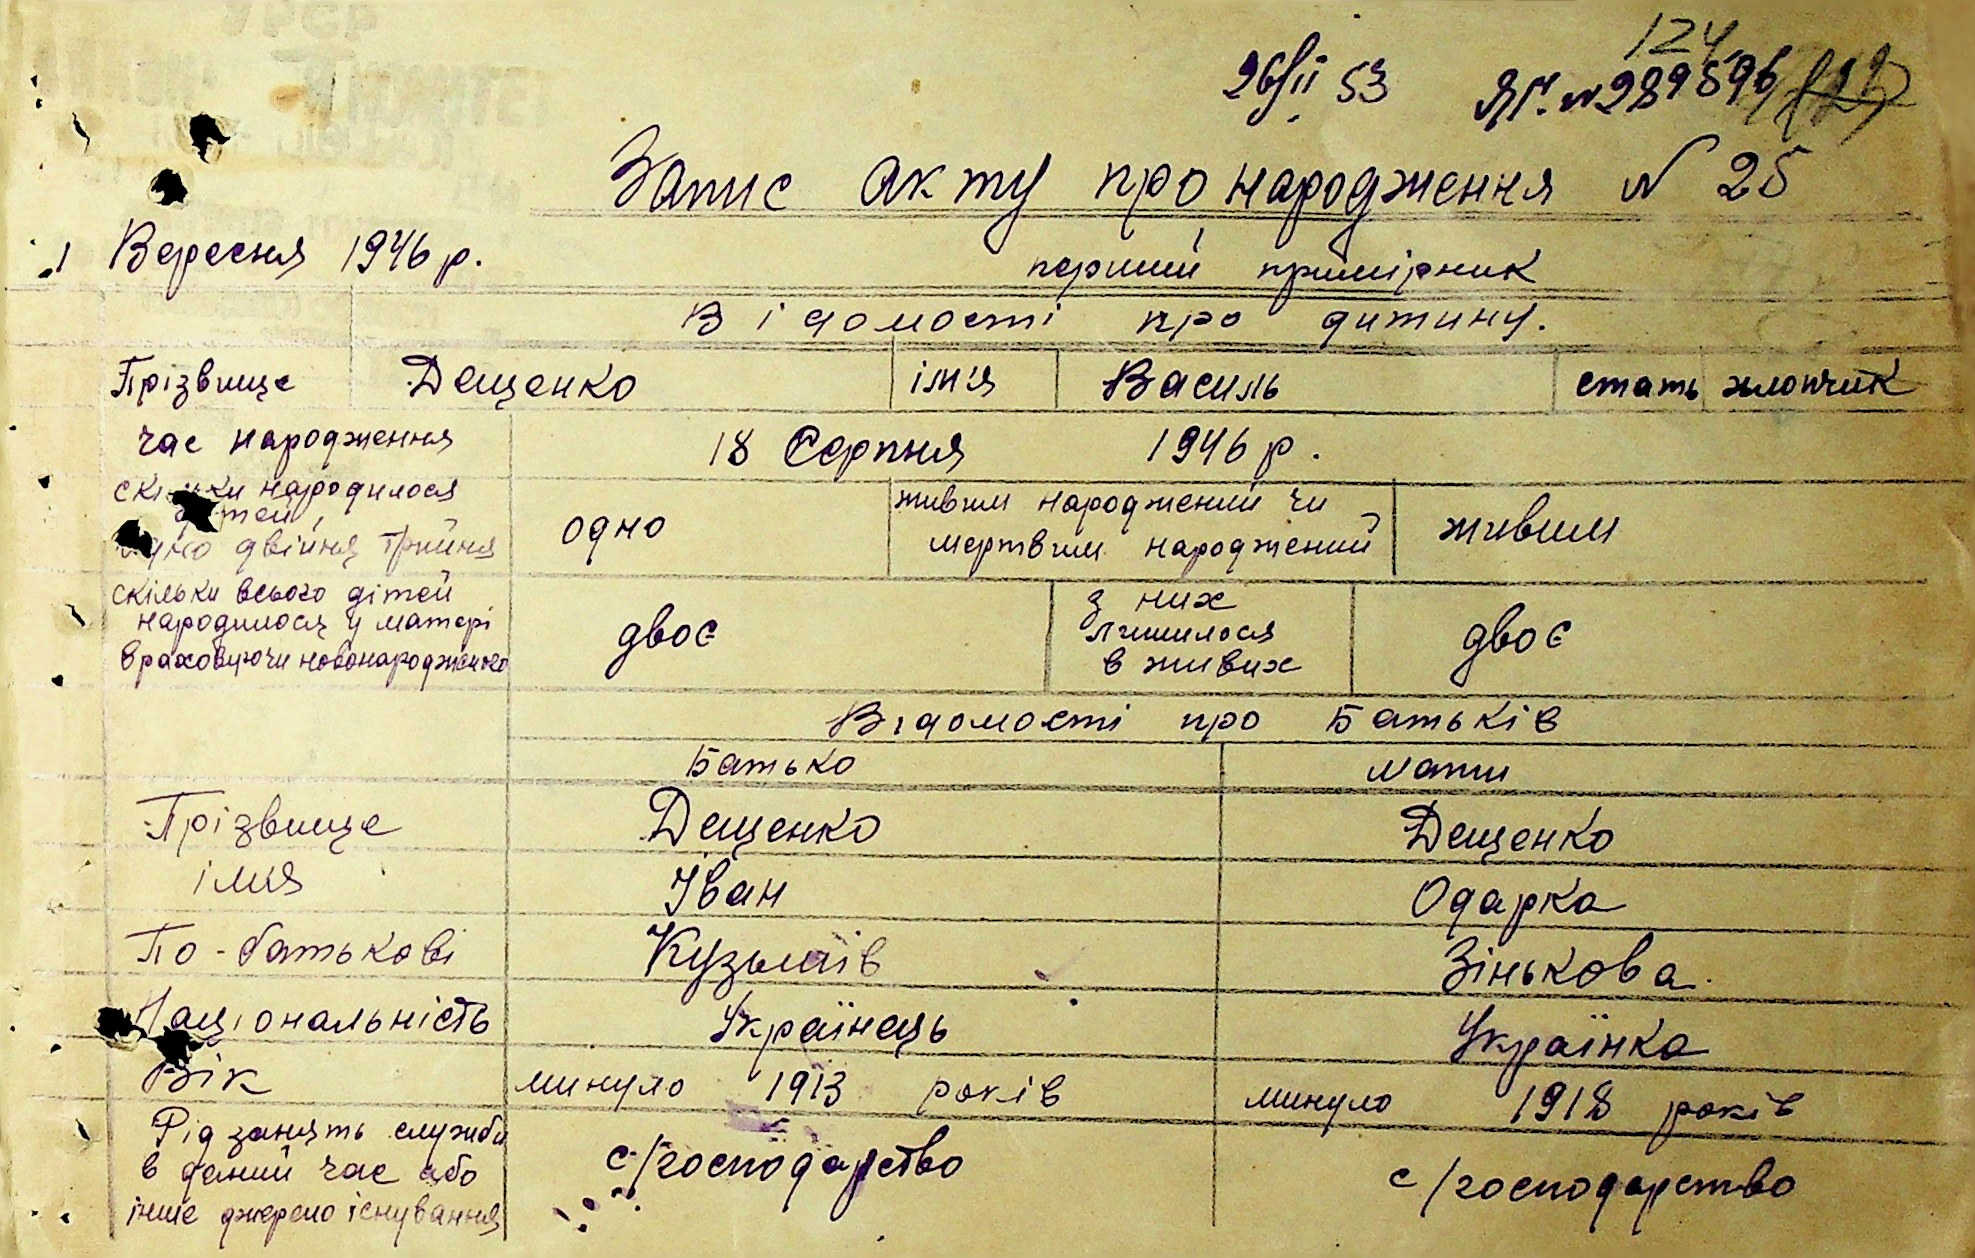 124
26/II 53 ЯГ. № 289596
Запис акту про народження № 25
1 Вересня 1946 р.
перший примірник
Відомості про дитину.
Прізвище Дещенко ім'я Василь стать хлопчик
час народження 18 Серпня 1946 р.
скільки народилося дітей, одно двійня трийня одно живим народжений чи мертвим народжений живим
скільки всього дітей народилося у матері враховуючи новонародженого двоє з них лишилося в живих двоє
Відомості про Батьків
Батько мати
Прізвище Дещенко Дещенко
імя Іван Одарка
По-батькові Кузьмів Зінькова
Національність Українець Українка
Вік минуло 1913 років минуло 1918 років
Рід занять служби в даний час або інше джерело існування с/господарство с/господарство